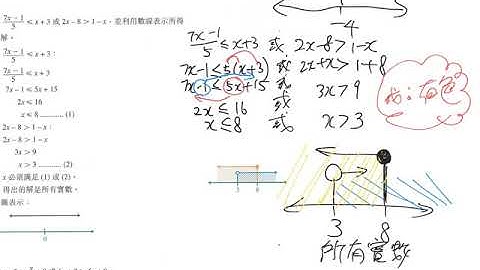 7x－1/5 ≤ x＋3 或 2x－8＞1－x，並利用數線表示所得
解。
7x－1/5 ≤ x＋3：
7x－1/5 ≤ x＋3
7x－1 ≤ 5x＋15
2x ≤ 16
x ≤ 8 ............ (1)
2x－8＞1－x：
2x－8＞1－x
3x＞9
x＞3 ............ (2)
x 必須滿足 (1) 或 (2)。
得出的解是所有實數。
圖表示：
0
-4
7x-1/5 ≤ x+3 或 2x-8 > 1-x
7x-1 ≤ 5(x+3) 或 2x+x > 1+8
7x-1 ≤ 5x+15 或 3x > 9
2x ≤ 16 或
x ≤ 8 或 x > 3
3 8
3 8
所有實數